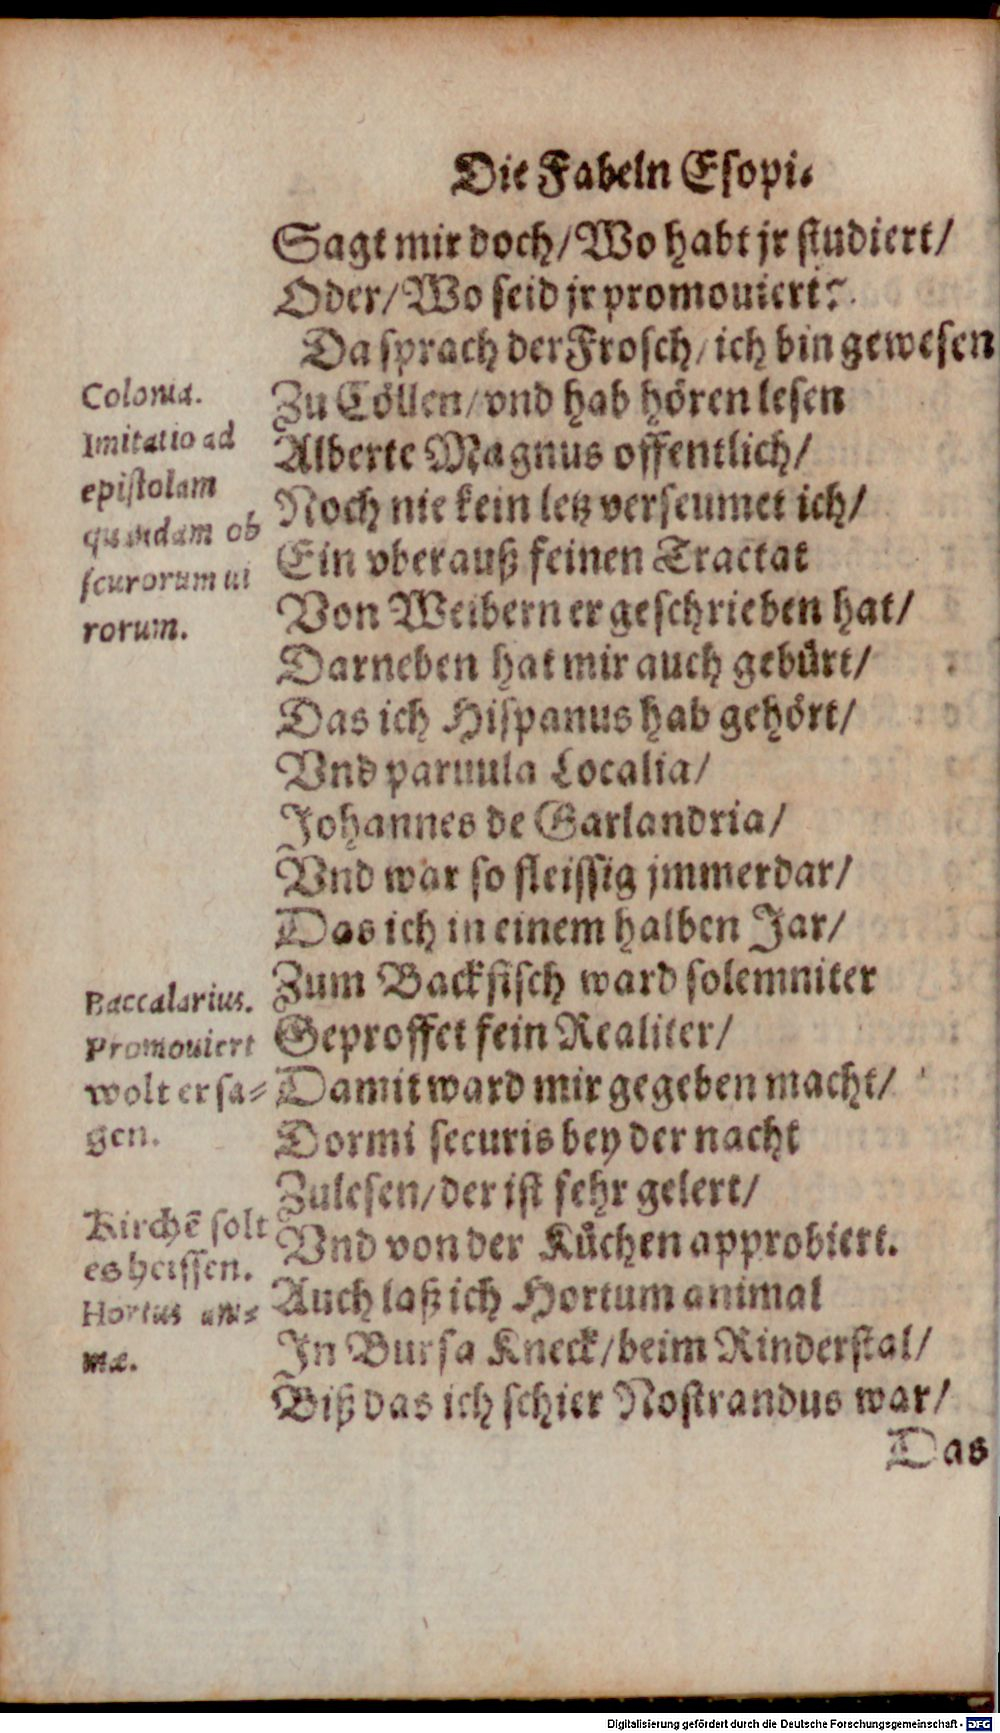 Die Fabeln Esopi.
Sagt mir doch/Wo habt jr studiert/
Oder/Wo seid jr promouiert?
Da sprach der Frosch/ich bin gewesen
Zu Cöllen/vnd hab hören lesen
Alberte Magnus offentlich/
Noch nie kein letz verseumet ich/
Ein vberauß feinen Tractat
Von Weibern er geschrieben hat/
Darneben hat mir auch gebürt/
Das ich Hispanus hab gehört/
Vnd paruula Localia/
Johannes de Garlandria/
Vnd war so fleissig jmmerdar/
Das ich in einem halben Jar/
Zum Backfisch ward solemniter
Geproffet fein Realiter/
Damit ward mir gegeben macht/
Dormi securis bey der nacht
Zulesen/der ist sehr gelert/
Vnd von der Küchen approbiert.
Auch laß ich Hortum animal
In Bursa Kneck/beim Rinderstal/
Biß das ich schier Nostrandus war/
Das
Colonia.
Imitatio ad
epistolam
quandam ob
scurorum ui
rorum.
Baccalarius.
Promouiert
wolt er sa-
gen.
Kirchē solt
es heissen.
Hortus ani-
mæ.
Digitalisierung gefördert durch die Deutsche Forschungsgemeinschaft - DFG